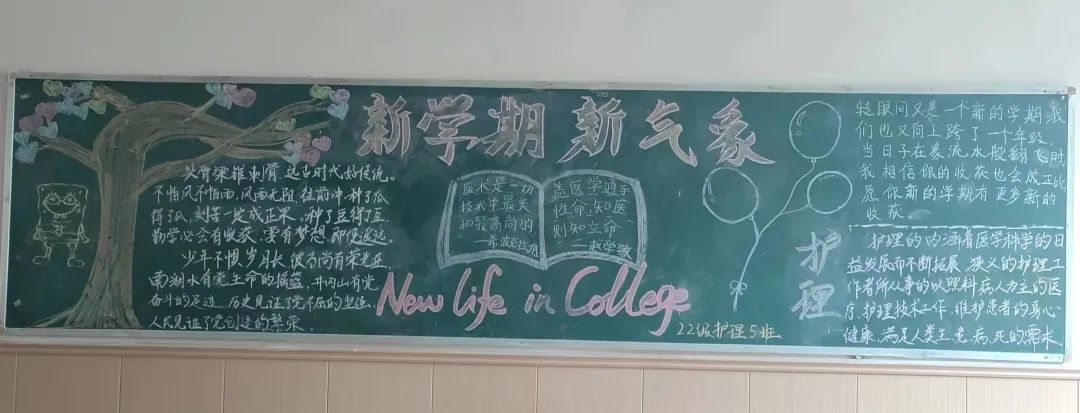 新学期 新气象
头脊梁锥刺骨 这当时代好传统。
不怕风不怕雨,风雨无阻 往前冲.种了瓜
得了瓜,刻苦一定成正果.种了豆得了豆
勤学必会有收获.要有梦想 即使遥远.
少年不惧岁月长 彼方尚有荣光在
南湖水有党生命的摇篮.井冈山有党
奋斗的足迹.历史见证了党不屈的坚毅
人民见证了党创造的繁荣.
医术是一切
技术中最美
和最高尚的
—希波克拉底
盖医学通乎
性命,知医
则知立命
——赵学敏
New life in College
22级护理5班
转眼间又是一个新的学期我
们也又向上跨了一个年级,
当日子在象流水般翻飞时
我相信你的收获也会成正比
愿你新的学期有更多新的
收获
护理
护理的内涵着医学科学的日
益发展而不断拓展.狭义的护理工
作者所从事的以照料病人为主的医
疗.护理技术工作.维护患者的身心
健康,满足人类生老.病.死的需求